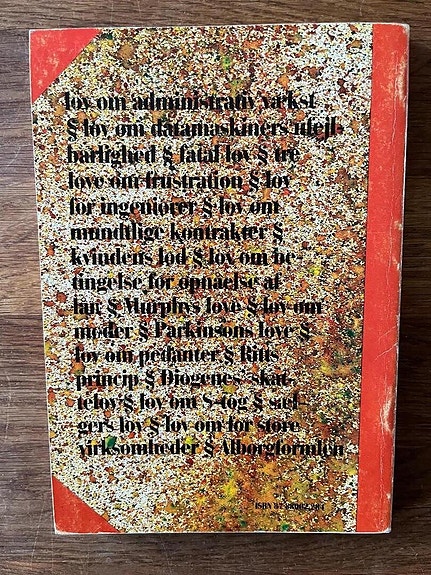 lov om administrativ vækst
§ lov om datamaskiners ufejl-
barlighed § fatal lov § tre
love om frustration § lov
for ingeniører § lov om
mundtlige kontrakter §
kvindens lod § lov om be-
tingelse for opnåelse af
lån § Murphys love § lov om
møder § Parkinsons love §
lov om pedanter § Ritts
princip § Diogenes' skat-
telov § lov om S-tog § sæl-
gers lov § lov om for store
virksomheder § Ålborgformlen
ISBN